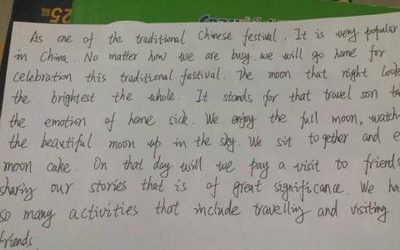 25
As one of the traditional Chinese festival. It is very popular
in China. No matter how we are busy. we will go home for
celebration this traditional festival. The moon that night look
the brightest the whole. It stands for that travel son
the emotion of home sick. We enjoy the full moon, watch
the beautiful moon up in the sky. We sit together and
moon cake. On that day will we pay a visit to friends
sharing our stories that is of great significance. We ha
so many activities that include travelling and visiting
friends